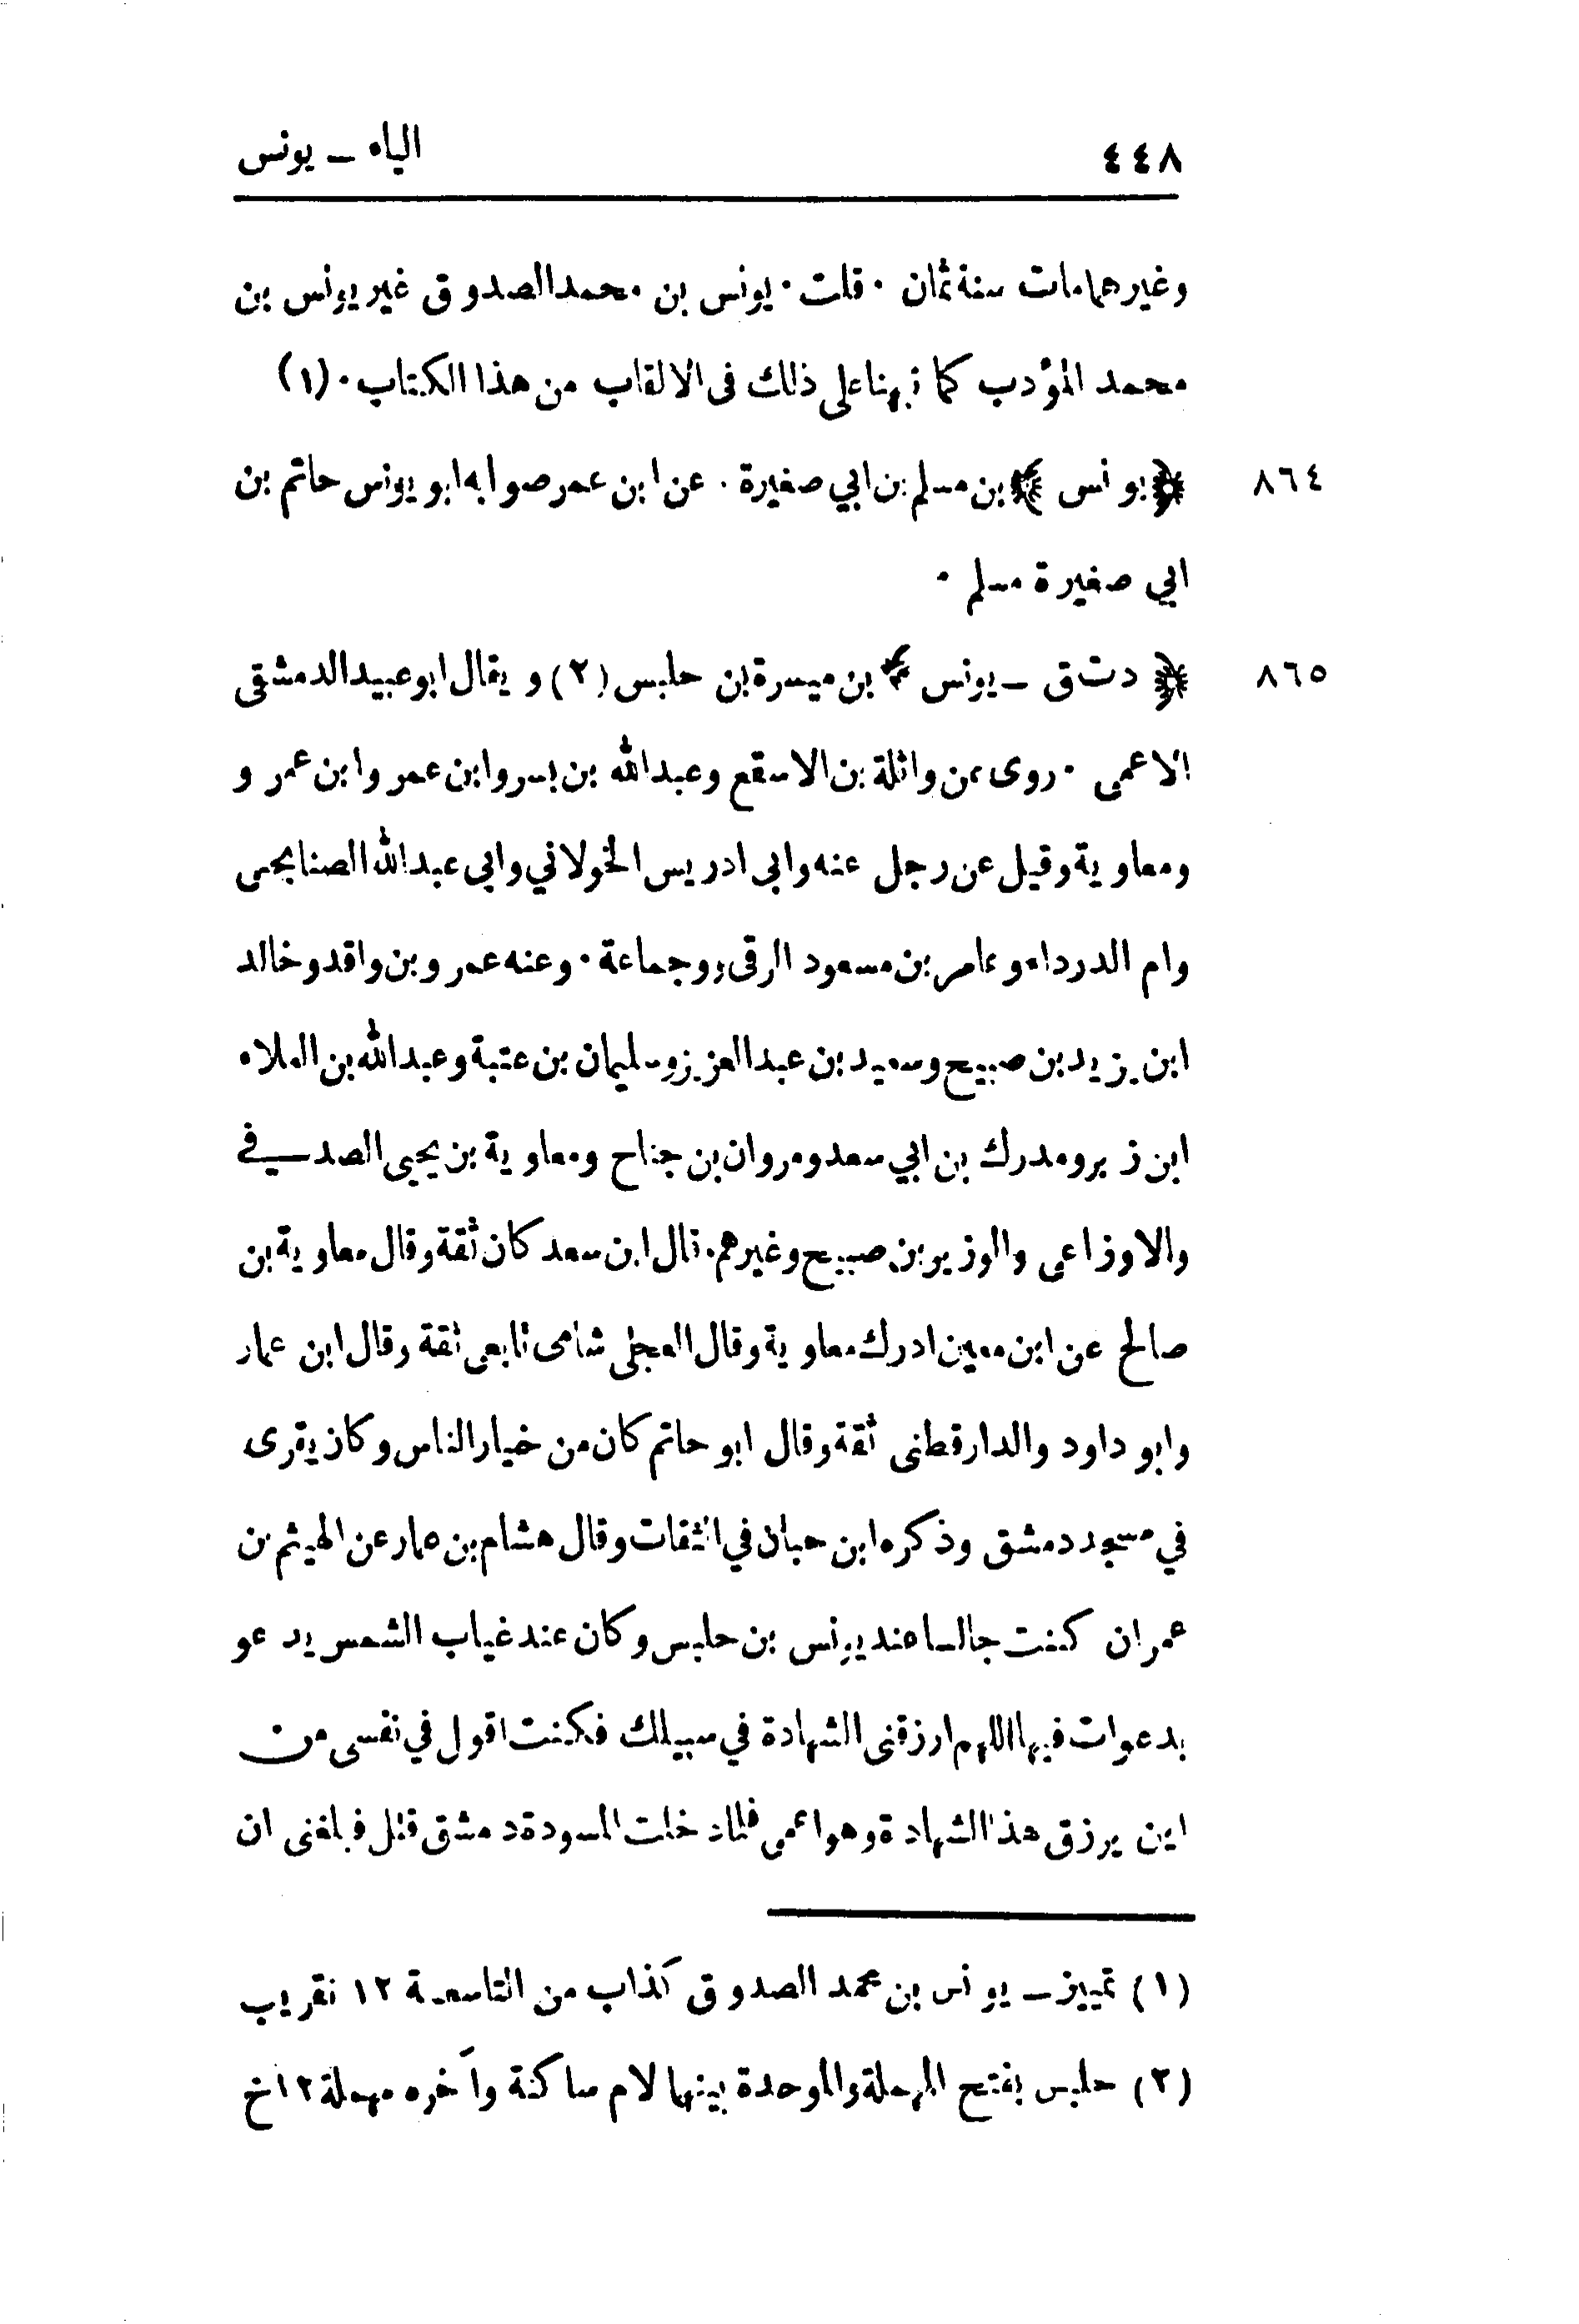 ٤٤٨
الياء ــ يونس
وغيرهما مات سنة ثمان · قلت · يونس بن محمد الصدوق غير يونس بن
محمد المؤدب كما نبهنا على ذلك فى الالقاب من هذا الكتاب · (١)
٨٦٤ ﴿ يونس ﴾ بن مسلم بن ابي صغيرة · عن ابن عمر صوابه ابو يونس حاتم بن
ابي صغيرة مسلم ·
٨٦٥ ﴿ د ت ق ــ يونس ﴾ بن ميسرة بن حلبس (٢) و يقال ابو عبيد الدمشقى
الاعمى · روى عن واثلة بن الاسقع وعبد الله بن بسر وابن عمر وابن عمر و
ومعاوية وقيل عن رجل عنه وابى ادريس الخولاني وابى عبد الله الصنابحى
وام الدرداء وعامر بن مسعود الرقى وجماعة · وعنه عمرو بن واقد وخالد
ابن يزيد بن صبيح وسعيد بن عبد العزيز وسليمان بن عتبة وعبد الله بن العلاء
ابن زبر ومدرك بن ابي سعد ومروان بن جناح ومعاوية بن يحيى الصدفي
والاوزاعى والوزير بن صبيح وغيرهم · قال ابن سعد كان ثقة وقال معاوية بن
صالح عن ابن معين ادرك معاوية وقال العجلى شامى تابعى ثقة وقال ابن عمار
وابو داود والدارقطنى ثقة وقال ابو حاتم كان من خيار الناس وكان يقرى
في مسجد دمشق وذكره ابن حبان في الثقات وقال هشام بن عمار عن الهيثم بن
عمران كنت جالسا عند يونس بن حلبس وكان عند غياب الشمس يدعو
بدعوات فيها اللهم ارزقنى الشهادة في سبيلك فكنت اقول في نفسى من
اين يرزق هذا الشهادة وهو اعمى فلما دخلت المسودة دمشق قتل فبلغنى ان
(١) تمييز ــ يونس بن محمد الصدوق كذاب من التاسعة ١٢ تقريب
(٢) حلبس بفتح المهملة والموحدة بينهما لام ساكنة وآخره مهملة ١٢ خ